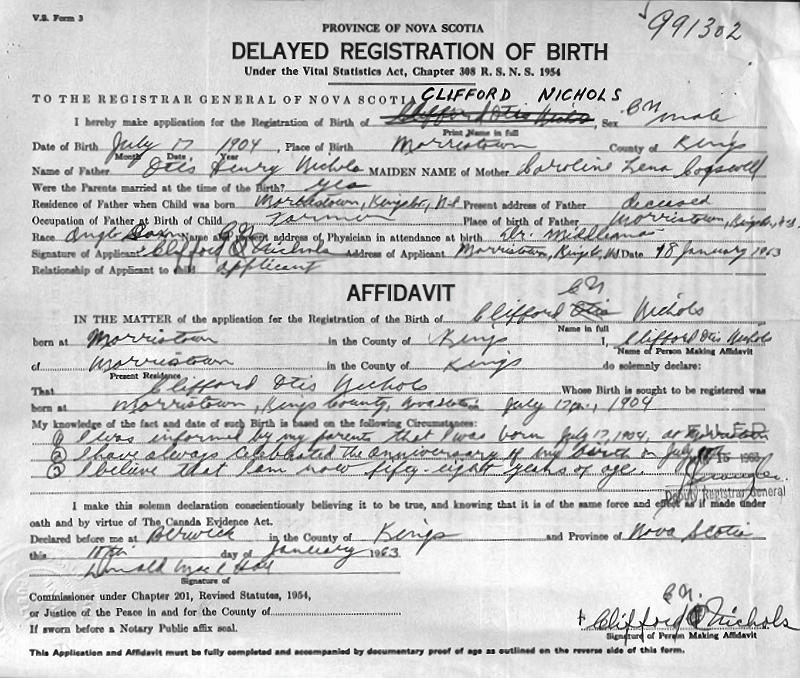 V.S. Form 3
991302
PROVINCE OF NOVA SCOTIA
DELAYED REGISTRATION OF BIRTH
Under the Vital Statistics Act, Chapter 308 R. S. N. S. 1954
TO THE REGISTRAR GENERAL OF NOVA SCOTIA CLIFFORD NICHOLS
I hereby make application for the Registration of Birth of Clifford Otis Nichols, Sex C.N. male
Print Name in full
Date of Birth July 17 1904, Place of Birth Morristown County of Kings
Month Date Year
Name of Father Otis Henry Nichols MAIDEN NAME of Mother Caroline Lena Cogswell
Were the Parents married at the time of the Birth? yes
Residence of Father when Child was born Morristown, Kings Co., N.S. Present address of Father deceased
Occupation of Father at Birth of Child Farmer Place of birth of Father Morristown, Kings Co., N.S.
Race Anglo Saxon Name and present address of Physician in attendance at birth Dr. Middlemas
Signature of Applicant Clifford O Nichols C.N. Address of Applicant Morristown, Kings Co., N.S. Date 18 January 1963
Relationship of Applicant to child applicant
AFFIDAVIT
C.N.
IN THE MATTER of the application for the Registration of the Birth of Clifford Otis Nichols
Name in full
born at Morristown in the County of Kings I, Clifford Otis Nichols
Name of Person Making Affidavit
of Morristown in the County of Kings do solemnly declare:
Present Residence
That Clifford Otis Nichols Whose Birth is sought to be registered was
born at Morristown, Kings County, Nova Scotia July 17, 1904
My knowledge of the fact and date of such Birth is based on the following Circumstances:
① I was informed by my parents that I was born July 17, 1904, at Morristown
② I have always celebrated the anniversary of my birth on July 17
③ I believe that I am now fifty-eight years of age.
FILED
15 1963
Deputy Registrar General
I make this solemn declaration conscientiously believing it to be true, and knowing that it is of the same force and effect as if made under
oath and by virtue of The Canada Evidence Act.
Declared before me at Berwick in the County of Kings and Province of Nova Scotia
this day of January 1963
Donald
Signature of
Commissioner under Chapter 201, Revised Statutes, 1954,
or Justice of the Peace in and for the County of
If sworn before a Notary Public affix seal.
C.N.
Clifford O Nichols
Signature of Person Making Affidavit
This Application and Affidavit must be fully completed and accompanied by documentary proof of age as outlined on the reverse side of this form.